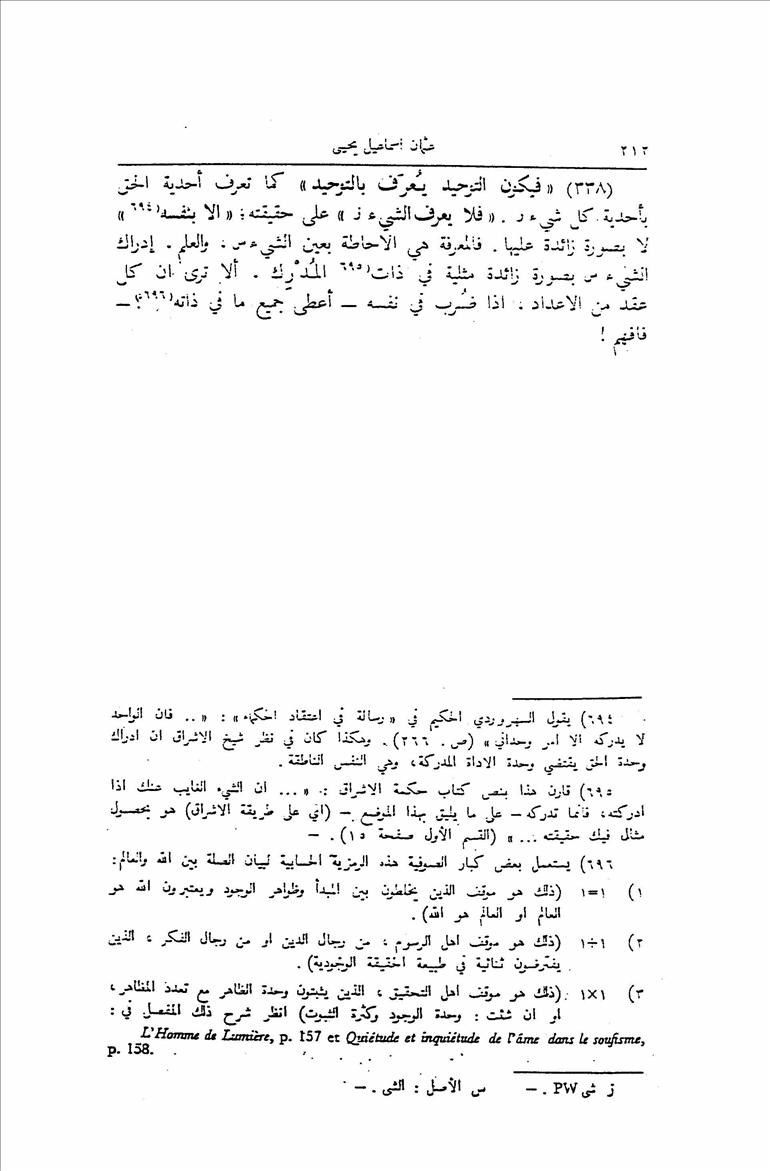 ٢١٢ عثمان اسماعيل يحيى
(٣٣٨) « فيكون التوحيد يُعرَف بالتوحيد » كما تعرف أحدية الحق
بأحدية كل شيء ر . « فلا يعرف الشيء ز » على حقيقته : « الا بنفسه(٦٩٤ »
لا بصورة زائدة عليها . فالمعرفة هي الاحاطة بعين الشيء س ، والعلم . إدراك
الشيء س بصورة زائدة مثلية في ذات(٦٩٥ المُدْرِك . ألا ترى ان كل
عقد من الاعداد ، اذا ضُرب في نفسه — أعطى جميع ما في ذاته(٦٩٦؟ —
فافهم !
٦٩٤) يقول السهروردي الحكيم في « رسالة في اعتقاد الحكماء » : « .. فان الواحد
لا يدركه الا امر وحداني » (ص . ٢٦٦) . وهكذا كان في نظر شيخ الاشراق ان ادراك
وحدة الحق يقتضي وحدة الاداة المدركة ، وهي النفس الناطقة .
٦٩٥) قارن هذا بنص كتاب حكمة الاشراق : « ... ان الشيء الغايب عنك اذا
ادركته ، فانما تدركه — على ما يليق بهذا الموضع — (اي على طريقة الاشراق) هو بحصول
مثال فيك حقيقته ... » (القسم الأول صفحة ١٥) . —
٦٩٦) يستعمل بعض كبار الصوفية هذه الرمزية الحسابية لبيان الصلة بين الله والعالم :
١) ١=١ (ذلك هو موقف الذين يخلطون بين المبدأ وظواهر الوجود ويعتبرون الله هو
العالم او العالم هو الله) .
٢) ١÷١ (ذلك هو موقف اهل الرسوم ، من رجال الدين او من رجال الفكر ، الذين
يفترضون ثنائية في طبيعة الحقيقة الوجودية) .
٣) ١×١ (ذلك هو موقف اهل التحقيق ، الذين يثبتون وحدة الظاهر مع تعدد المظاهر ،
او ان شئت : وحدة الوجود وكثرة الثبوت) انظر شرح ذلك المفصل في :
L'Homme de Lumière, p. 157 et Quiétude et inquiétude de l'âme dans le soufisme,
p. 158.
ز شى PW . — س الأصل : الشى . —